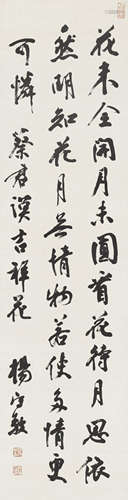 花未全開月未圓看花待月思依
然明知花月無情物若使多情更
可憐 蔡君謨吉祥花 楊守敬